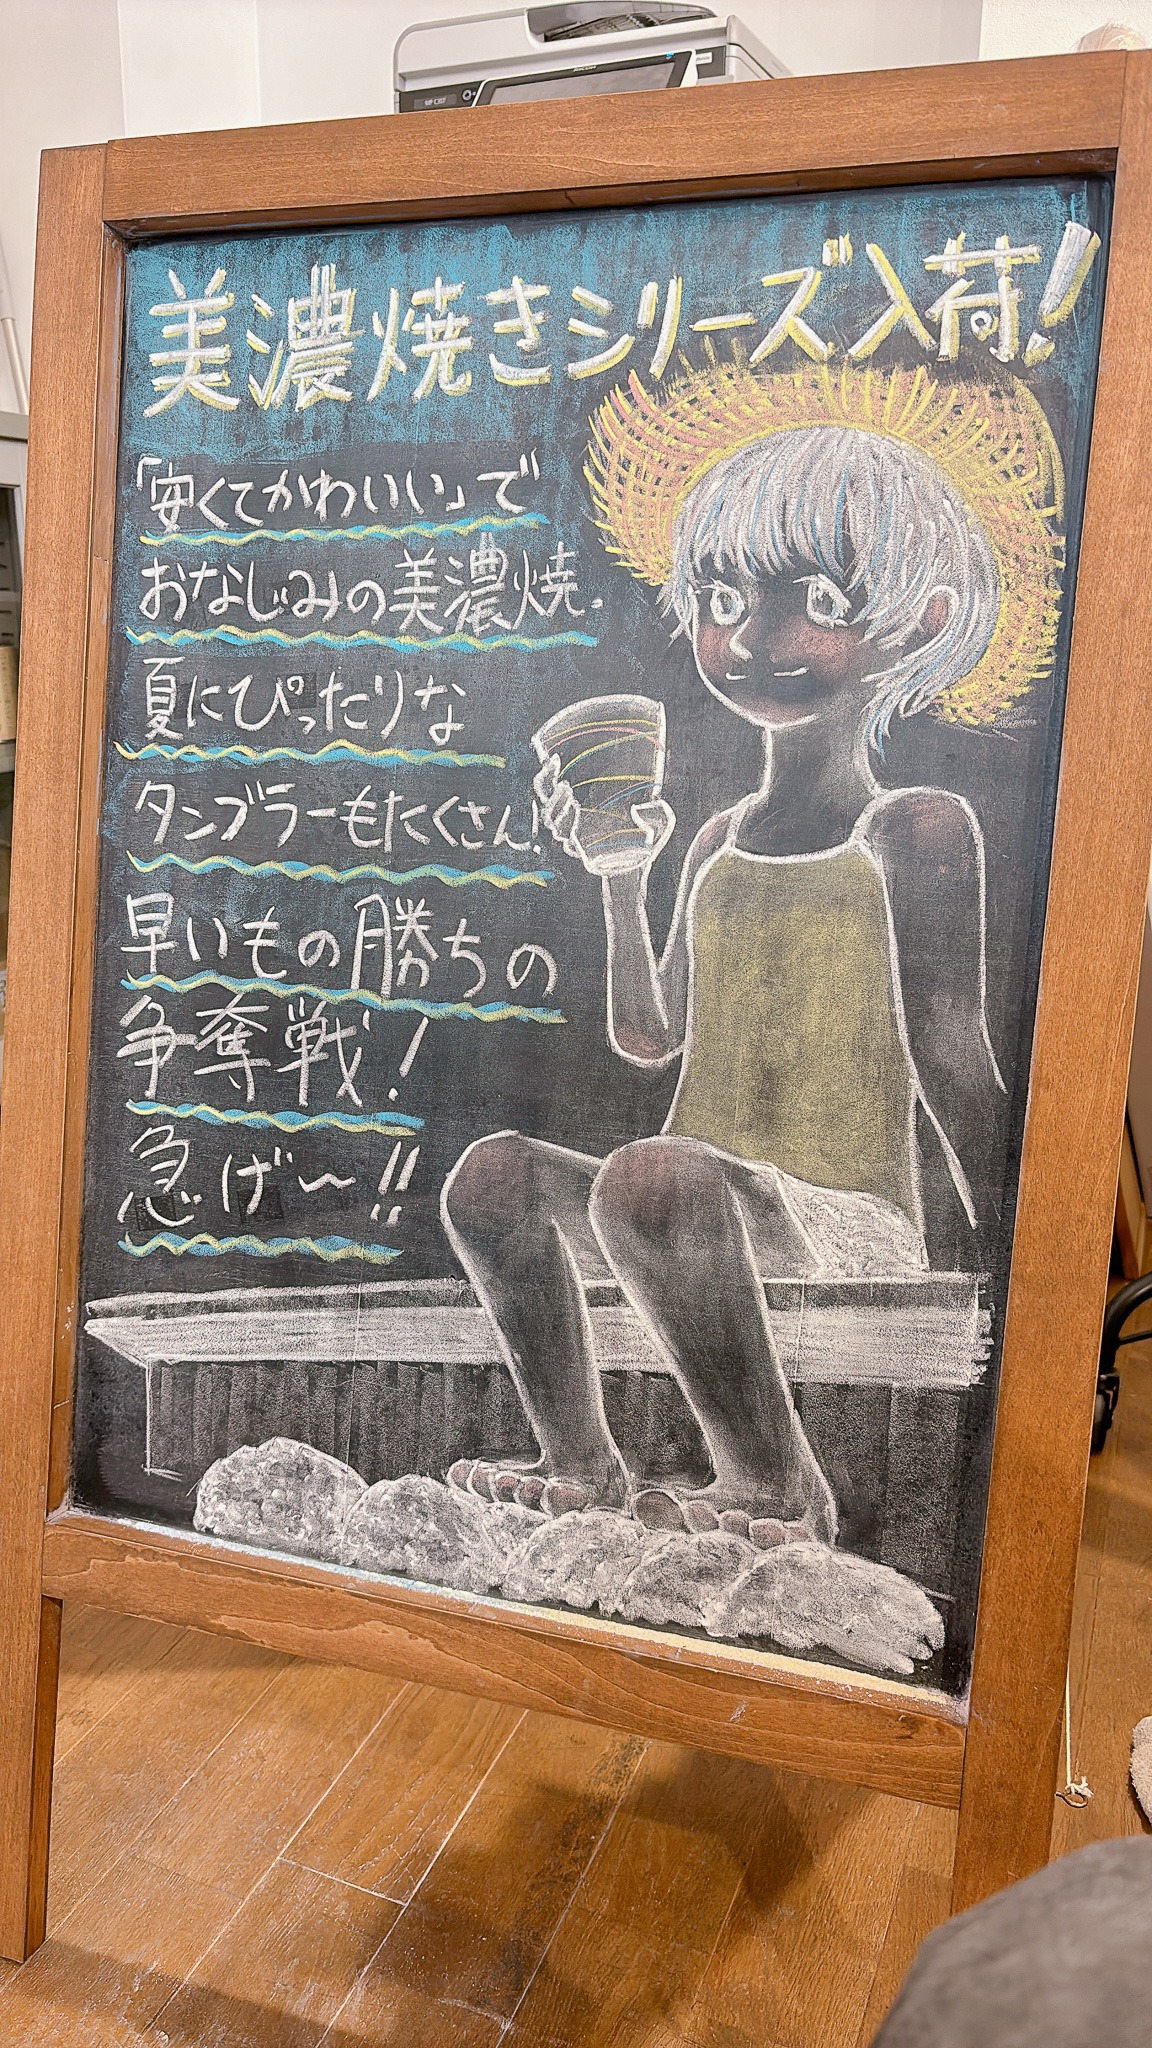 美濃焼きシリーズ入荷!
「安くてかわいい」で
おなじみの美濃焼。
夏にぴったりな
タンブラーもたくさん!
早いもの勝ちの
争奪戦!
急げ〜!!